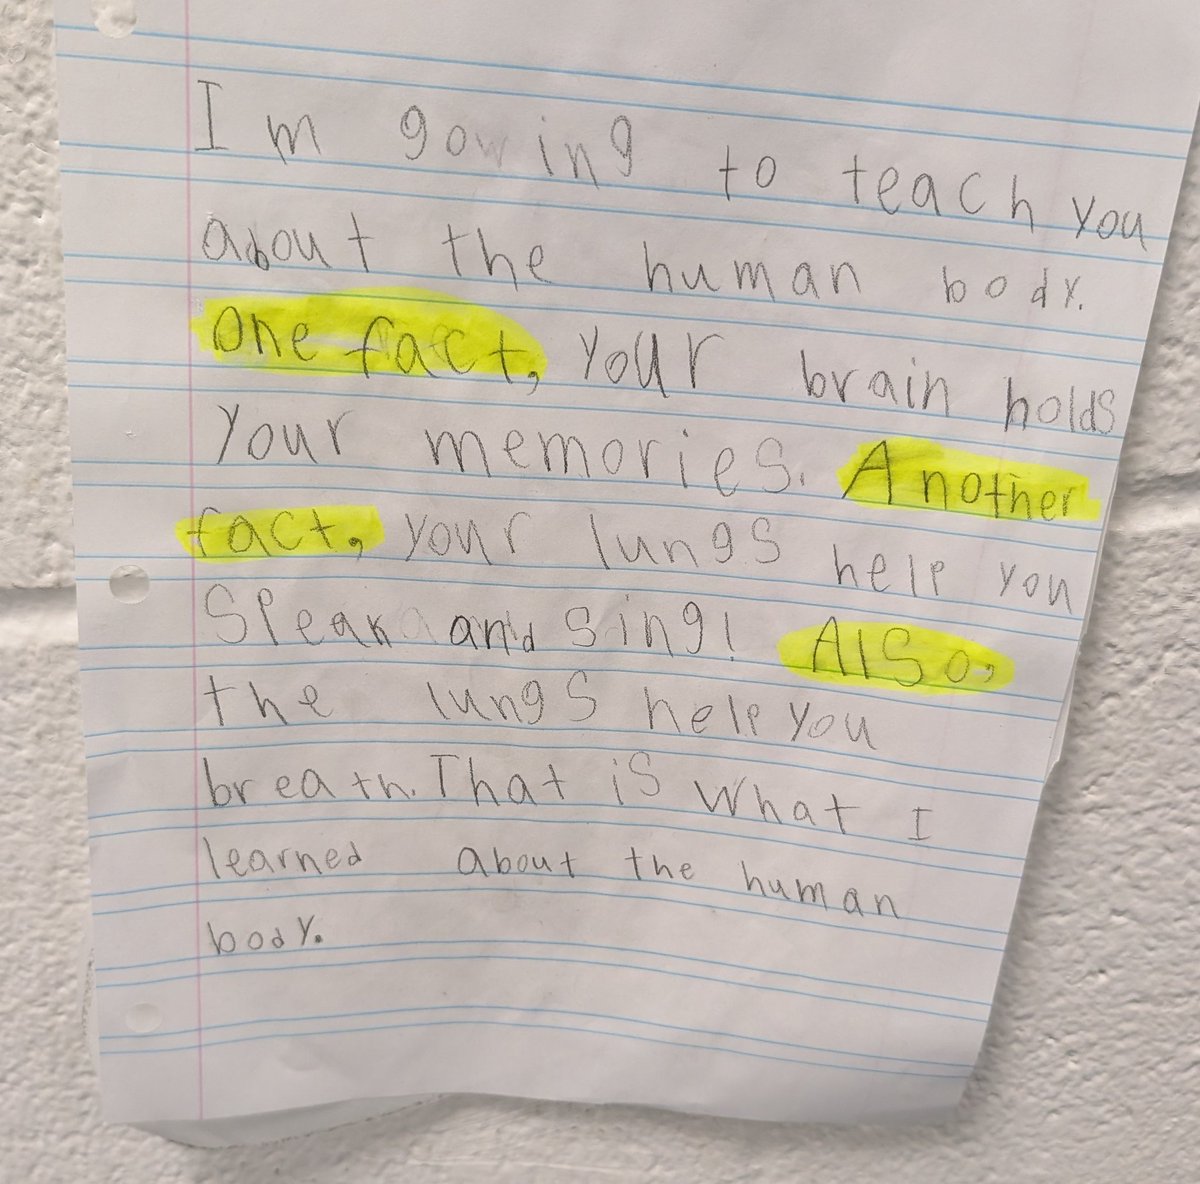 Im gowing to teach you
about the human body.
One fact, your brain holds
your memories. Another
fact, your lungs help you
Speak and sing! Also,
the lungs help you
breath. That is what I
learned about the human
body.